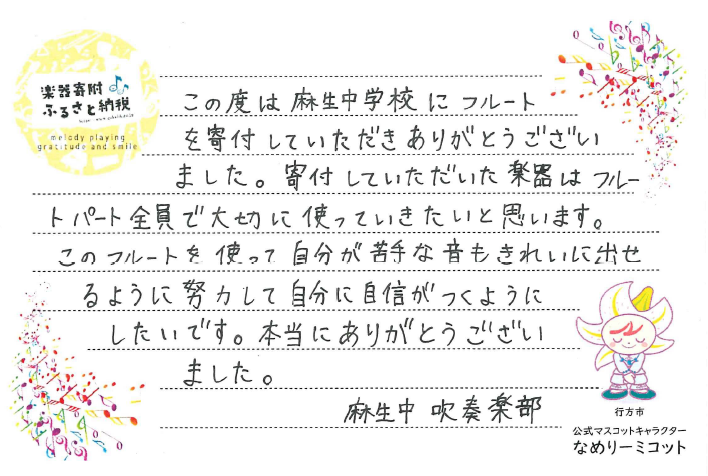 楽器寄附
ふるさと納税
melody playing
gratitude and smile
この度は麻生中学校にフルート
を寄付していただきありがとうござい
ました。寄付していただいた楽器はフルー
トパート全員で大切に使っていきたいと思います。
このフルートを使って自分が苦手な音もきれいに出せ
るように努力して自分に自信がつくように
したいです。本当にありがとうござい
ました。
麻生中 吹奏楽部
行方市
公式マスコットキャラクター
なめりーミコット